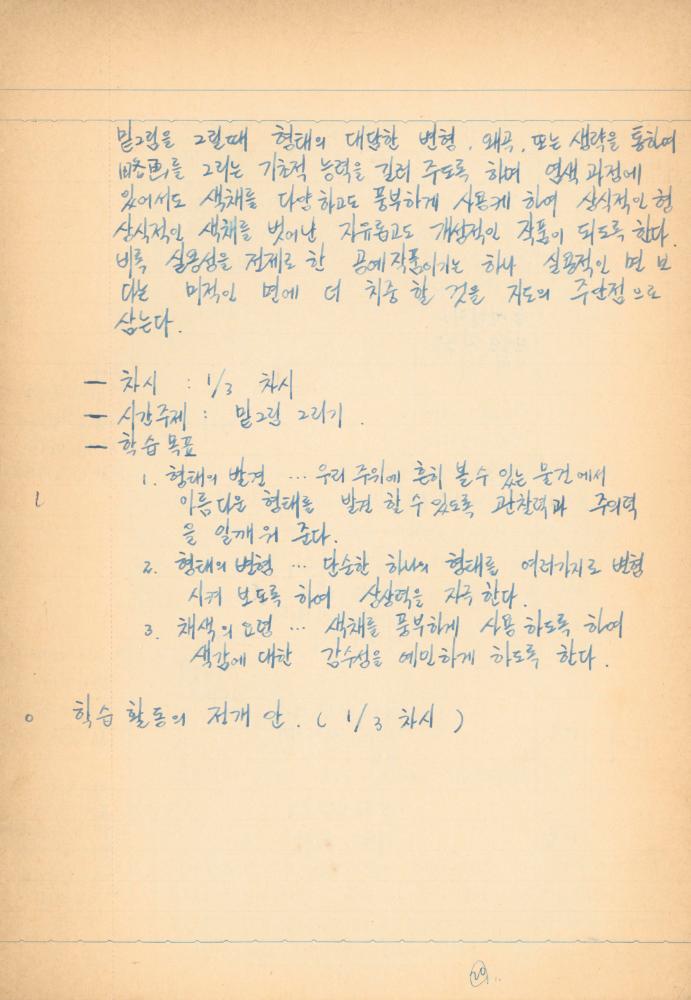 밑그림을 그릴때 형태의 대담한 변형, 왜곡, 또는 생략을 통하여
略画를 그리는 기초적 능력을 길러 주도록 하며 염색과정에
있어서도 색채를 다양하고도 풍부하게 사용케 하여 상식적인 형
상식적인 색채를 벗어난 자유롭고도 개성적인 작품이 되도록 한다.
비록 실용성을 전제로 한 공예작품이기는 하나 실용적인 면 보
다는 미적인 면에 더 치중 할 것을 지도의 주안점으로
삼는다.
― 차시 : 1/3 차시
― 시간주제 : 밑그림 그리기.
― 학습목표
1. 형태의 발견 … 우리 주위에 흔히 볼수 있는 물건에서
아름다운 형태를 발견 할수 있도록 관찰력과 주의력
을 일깨워 준다.
2. 형태의 변형 … 단순한 하나의 형태를 여러가지로 변형
시켜 보도록 하여 상상력을 자극한다.
3. 채색의 요령 … 색채를 풍부하게 사용하도록 하여
색감에 대한 감수성을 예민하게 하도록 한다.
○ 학습활동의 전개안. ( 1/3 차시 )